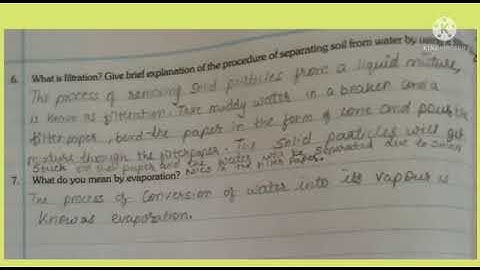 KINEMASTER
6. What is filtration? Give brief explanation of the procedure of separating soil from water by using it.
The process of removing solid particles from a liquid mixture,
is known as filteration. Take muddy water in a beaker and a
filter paper, bend the paper in the form of cone and pour the
mixture through the filterpaper. The solid particles will get
stuck on the paper and the water will be separated due to small
holes in the filter paper.
7. What do you mean by evaporation?
The process of conversion of water into its vapour is
known as evaporation.